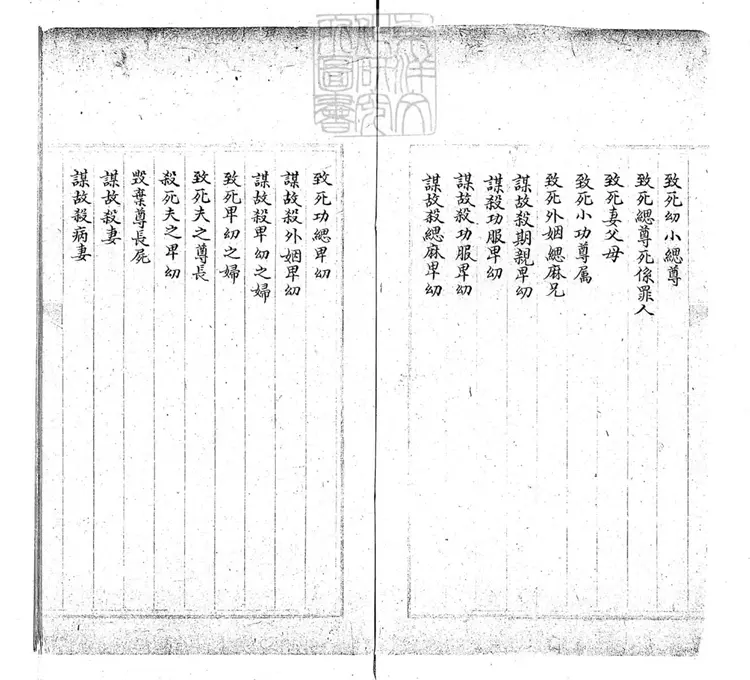 致死幼小緦尊
致死緦尊死係罪人
致死妻父母
致死小功尊属
致死外姻緦麻兄
謀故殺期親卑幼
謀殺功服卑幼
謀故殺功服卑幼
謀故殺緦麻卑幼
致死功緦卑幼
謀故殺外姻卑幼
謀故殺卑幼之婦
致死卑幼之婦
致死夫之尊長
殺死夫之卑幼
毀棄尊長屍
謀故殺妻
謀故殺病妻